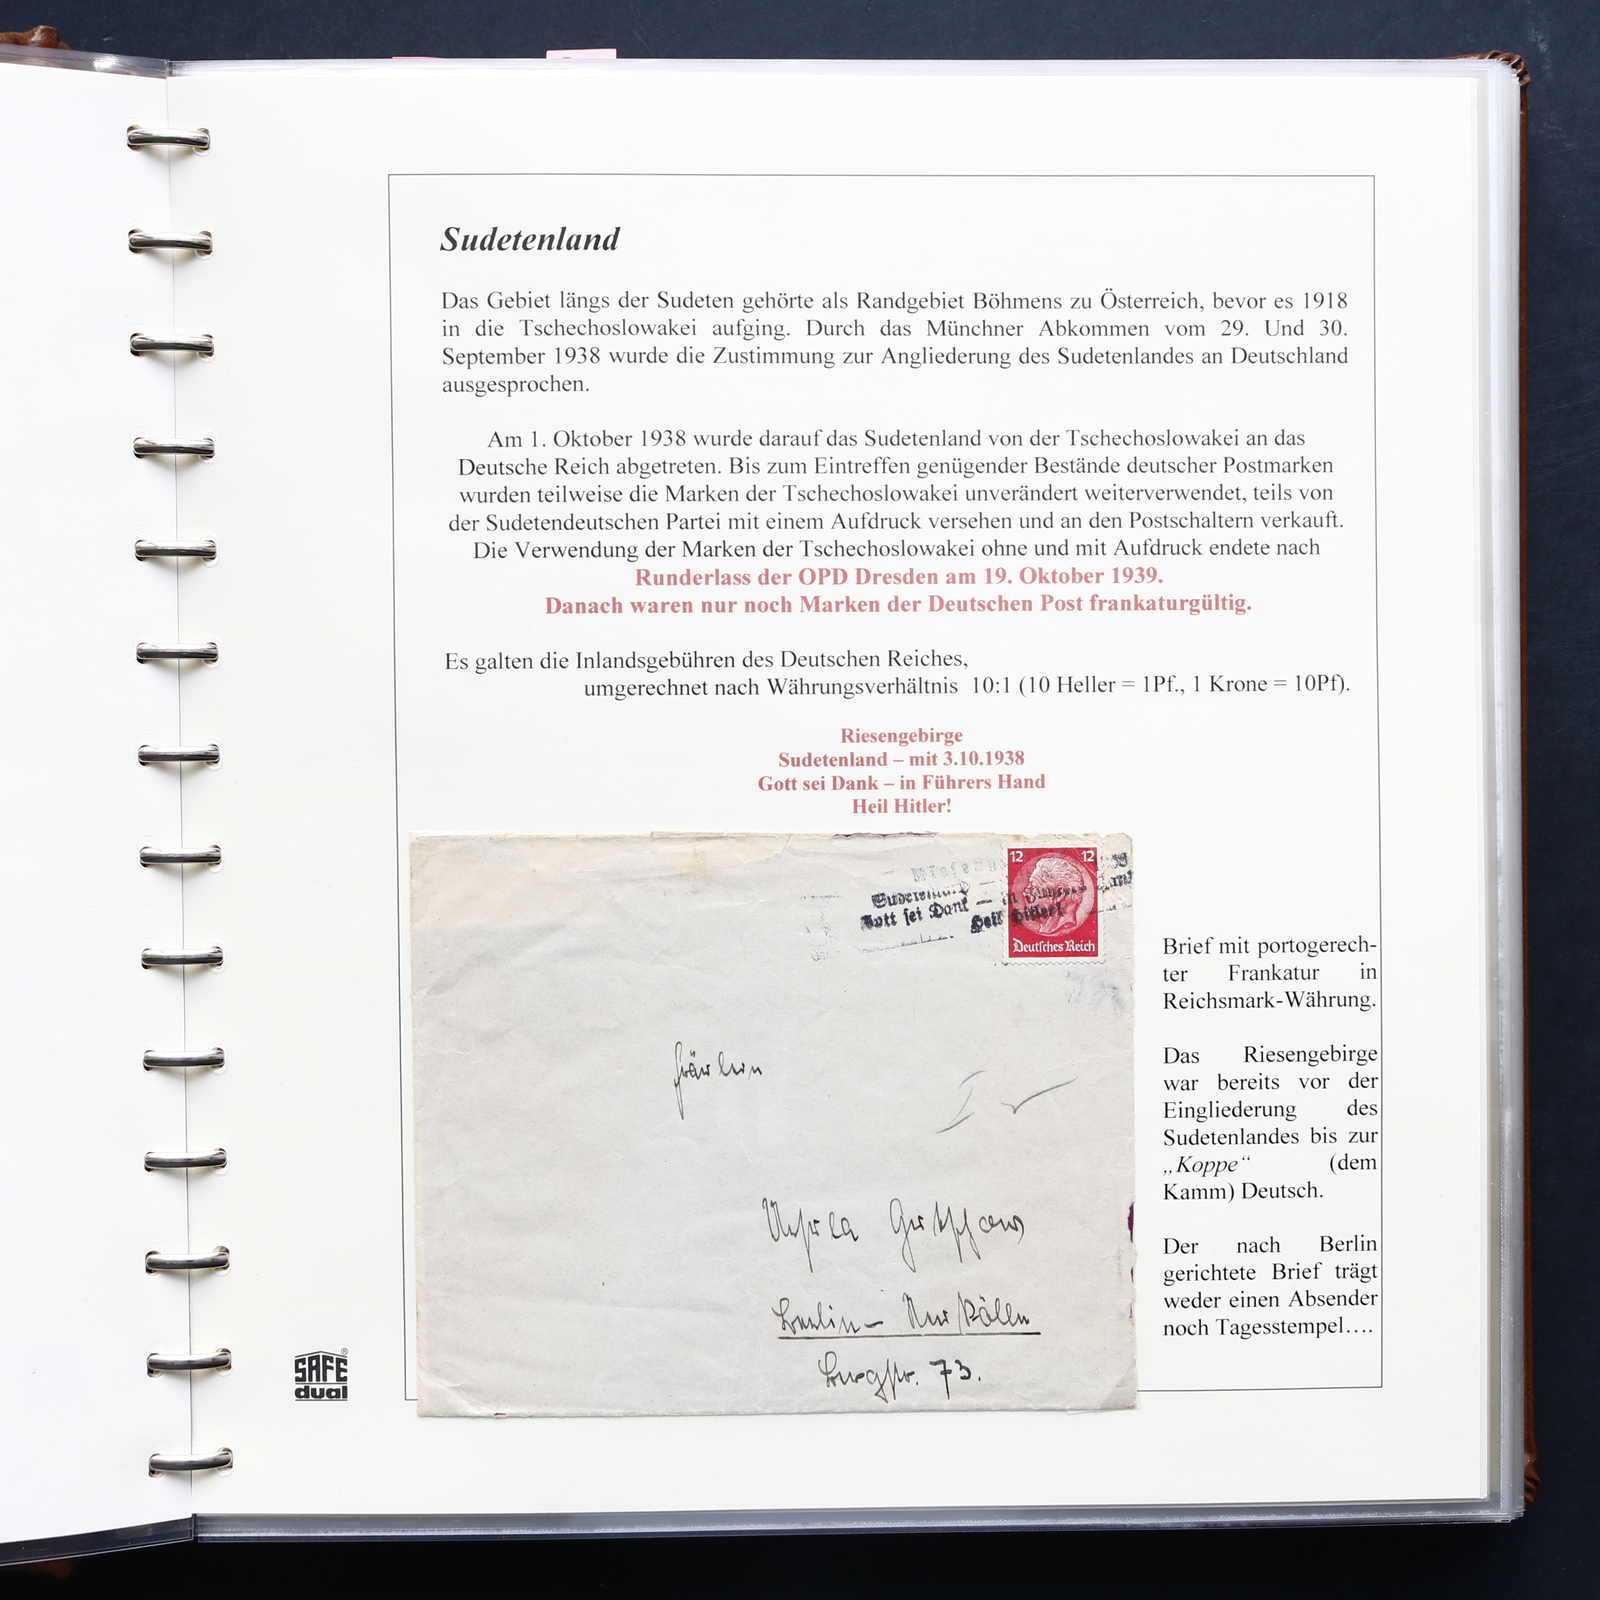 Sudetenland
Das Gebiet längs der Sudeten gehörte als Randgebiet Böhmens zu Österreich, bevor es 1918
in die Tschechoslowakei aufging. Durch das Münchner Abkommen vom 29. Und 30.
September 1938 wurde die Zustimmung zur Angliederung des Sudetenlandes an Deutschland
ausgesprochen.
Am 1. Oktober 1938 wurde darauf das Sudetenland von der Tschechoslowakei an das
Deutsche Reich abgetreten. Bis zum Eintreffen genügender Bestände deutscher Postmarken
wurden teilweise die Marken der Tschechoslowakei unverändert weiterverwendet, teils von
der Sudetendeutschen Partei mit einem Aufdruck versehen und an den Postschaltern verkauft.
Die Verwendung der Marken der Tschechoslowakei ohne und mit Aufdruck endete nach
Runderlass der OPD Dresden am 19. Oktober 1939.
Danach waren nur noch Marken der Deutschen Post frankaturgültig.
Es galten die Inlandsgebühren des Deutschen Reiches,
umgerechnet nach Währungsverhältnis 10:1 (10 Heller = 1Pf., 1 Krone = 10Pf).
Riesengebirge
Sudetenland – mit 3.10.1938
Gott sei Dank – in Führers Hand
Heil Hitler!
12 12
Sudetenland — in Führers Hand
Gott sei Dank — Heil Hitler!
Deutsches Reich
Fräulein
Ursula
Berlin – Neukölln
73.
Brief mit portogerech-
ter Frankatur in
Reichsmark-Währung.
Das Riesengebirge
war bereits vor der
Eingliederung des
Sudetenlandes bis zur
„Koppe“ (dem
Kamm) Deutsch.
Der nach Berlin
gerichtete Brief trägt
weder einen Absender
noch Tagesstempel….
SAFE®
dual